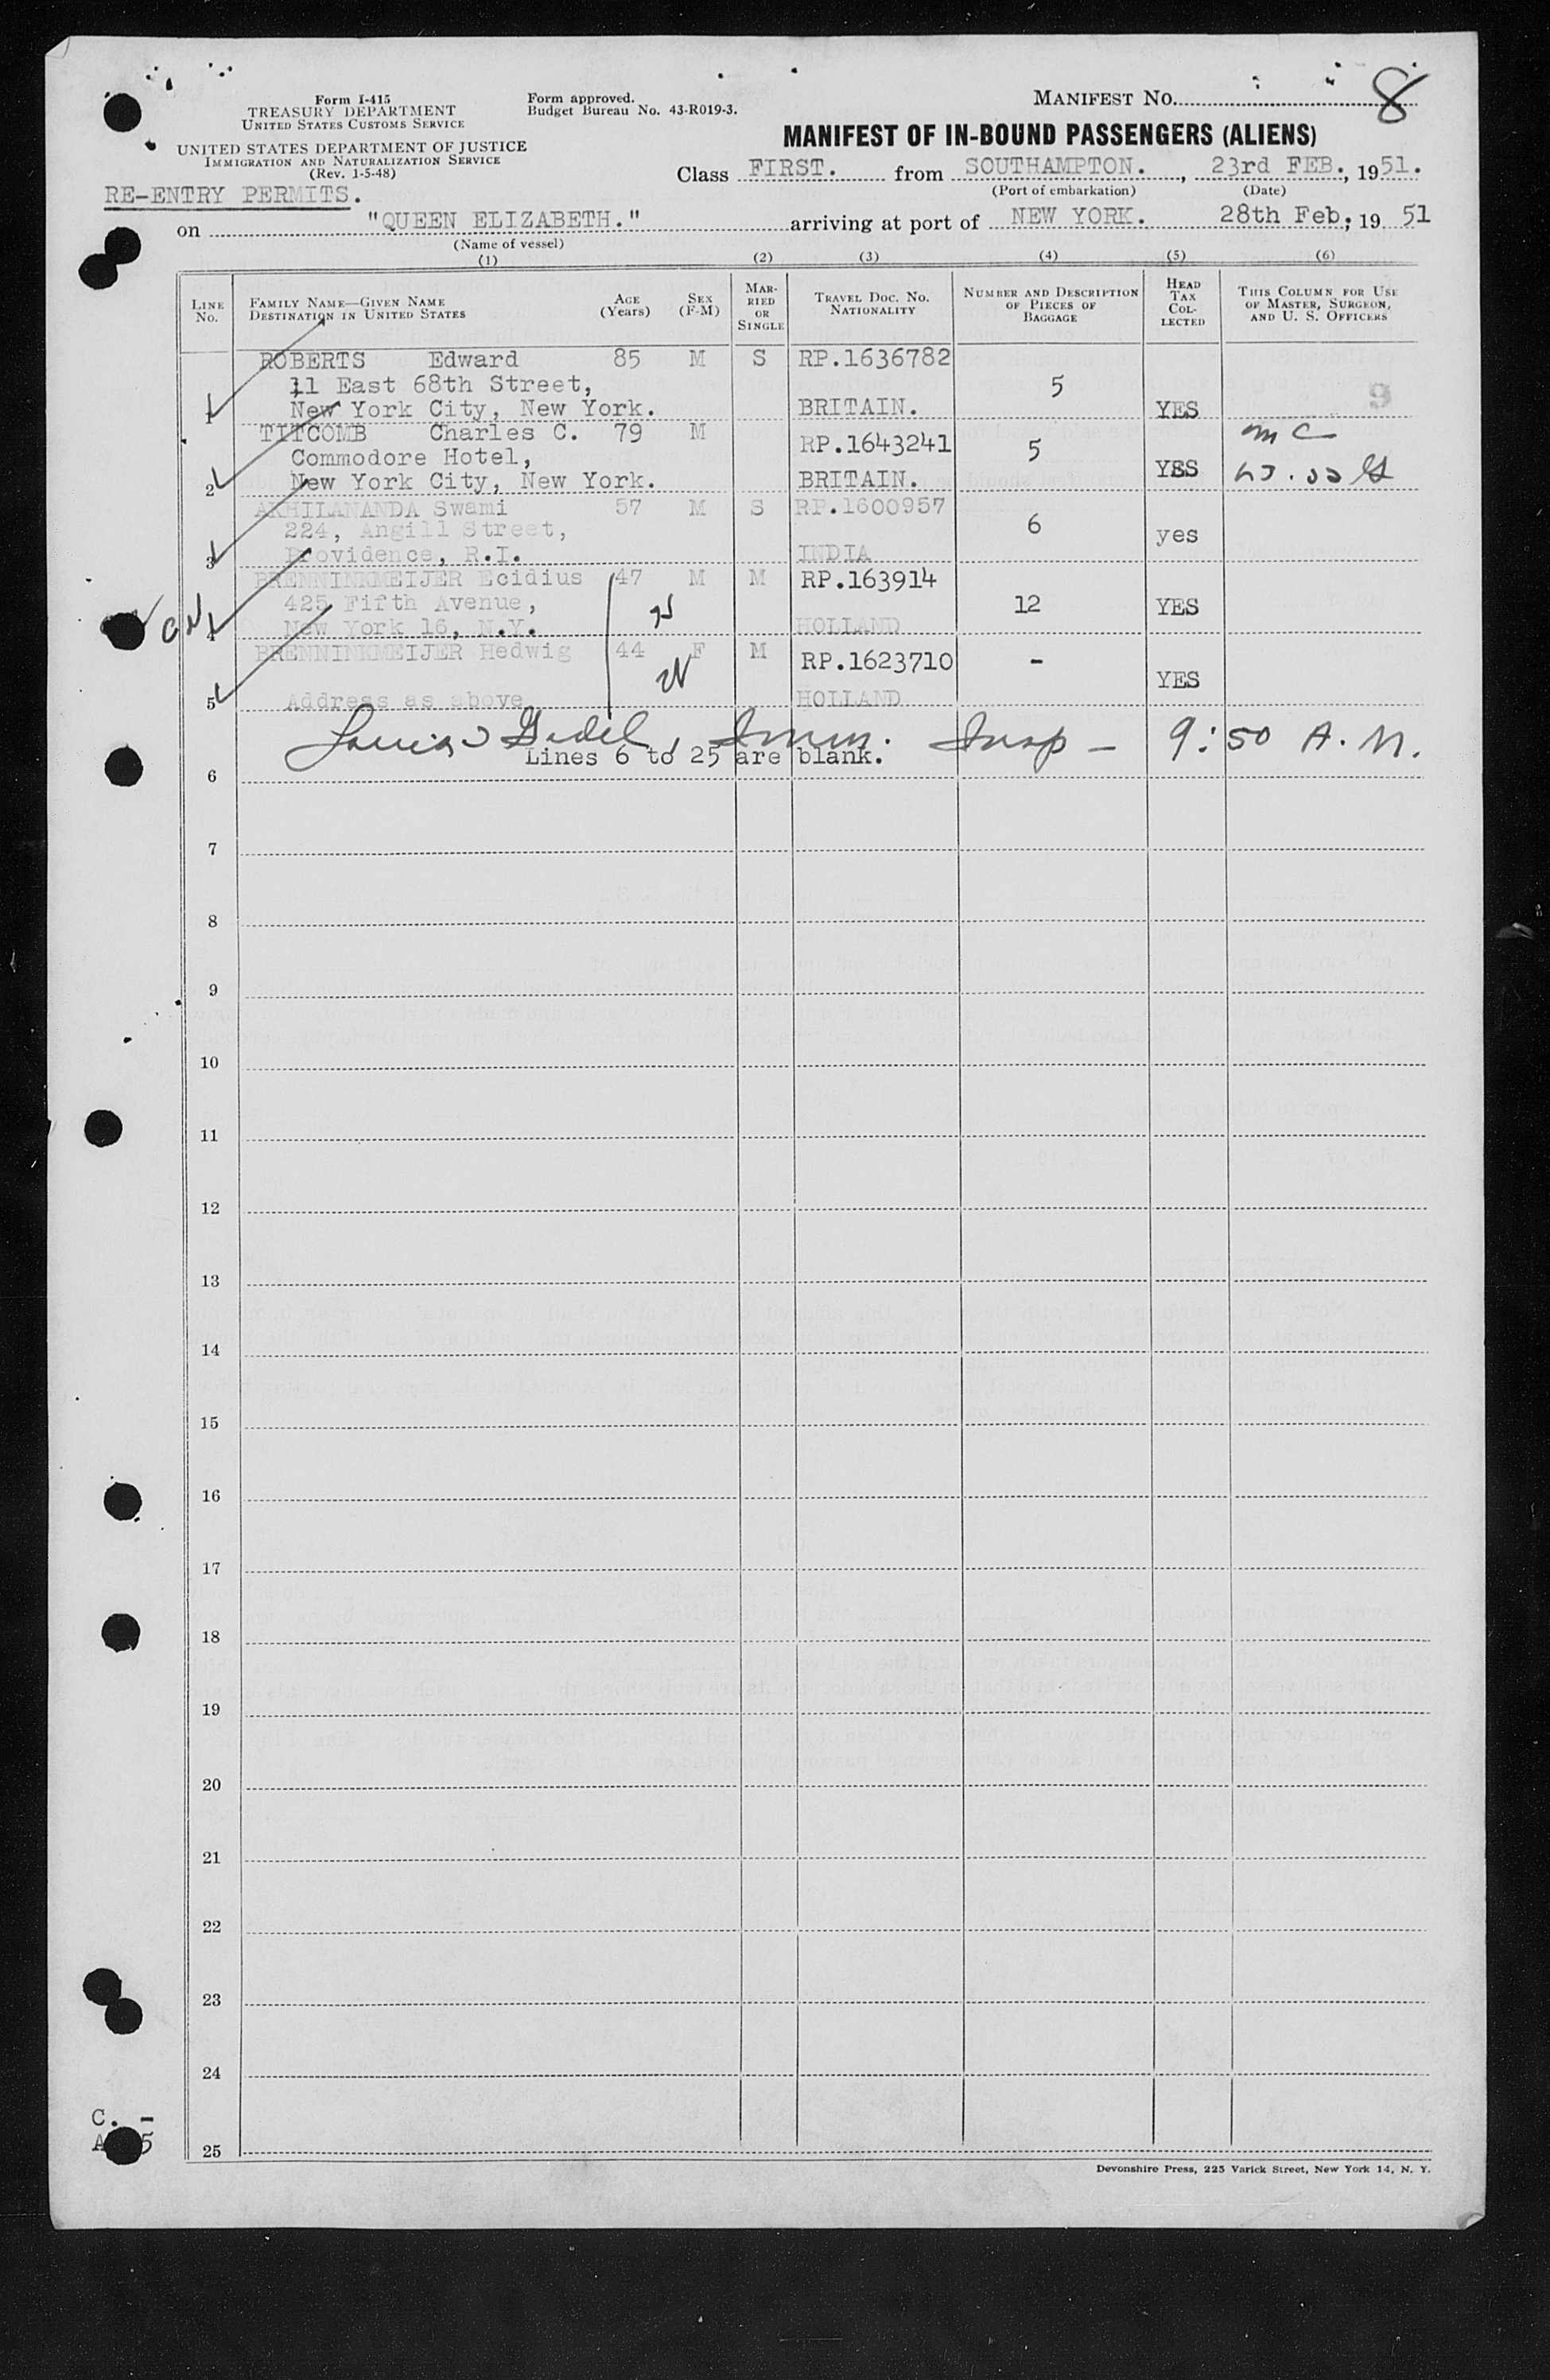 Form I-415
TREASURY DEPARTMENT
UNITED STATES CUSTOMS SERVICE
UNITED STATES DEPARTMENT OF JUSTICE
IMMIGRATION AND NATURALIZATION SERVICE
(Rev. 1-5-48)
RE-ENTRY PERMITS.
Form approved.
Budget Bureau No. 43-R019-3.
MANIFEST NO. 8
MANIFEST OF IN-BOUND PASSENGERS (ALIENS)
Class FIRST. from SOUTHAMPTON., 23rd FEB., 1951.
(Port of embarkation) (Date)
on "QUEEN ELIZABETH." arriving at port of NEW YORK. 28th Feb; 19 51
(Name of vessel)
(1) (2) (3) (4) (5) (6)
LINE NO. FAMILY NAME—GIVEN NAME DESTINATION IN UNITED STATES AGE (Years) SEX (F-M) MARRIED OR SINGLE TRAVEL DOC. NO. NATIONALITY NUMBER AND DESCRIPTION OF PIECES OF BAGGAGE HEAD TAX COLLECTED THIS COLUMN FOR USE OF MASTER, SURGEON, AND U. S. OFFICERS
ROBERTS Edward 85 M S RP.1636782
11 East 68th Street, 5 9
1 New York City, New York. BRITAIN. YES
TITCOMB Charles C. 79 M RP.1643241 mc
Commodore Hotel, 5
2 New York City, New York. BRITAIN. YES
AKHILANANDA Swami 57 M S RP.1600957
224, Angill Street, 6 yes
3 Providence, R.I. INDIA
BRENNINKMEIJER Ecidius 47 M M RP.163914
425 Fifth Avenue, 12 YES
4 New York 16, N.Y. HOLLAND
BRENNINKMEIJER Hedwig 44 F M RP.1623710 -
YES
5 Address as above HOLLAND
Imm. Insp - 9:50 A.M.
Lines 6 to 25 are blank.
6
7
8
9
10
11
12
13
14
15
16
17
18
19
20
21
22
23
24
C. -
A 5
25
Devonshire Press, 225 Varick Street, New York 14, N. Y.